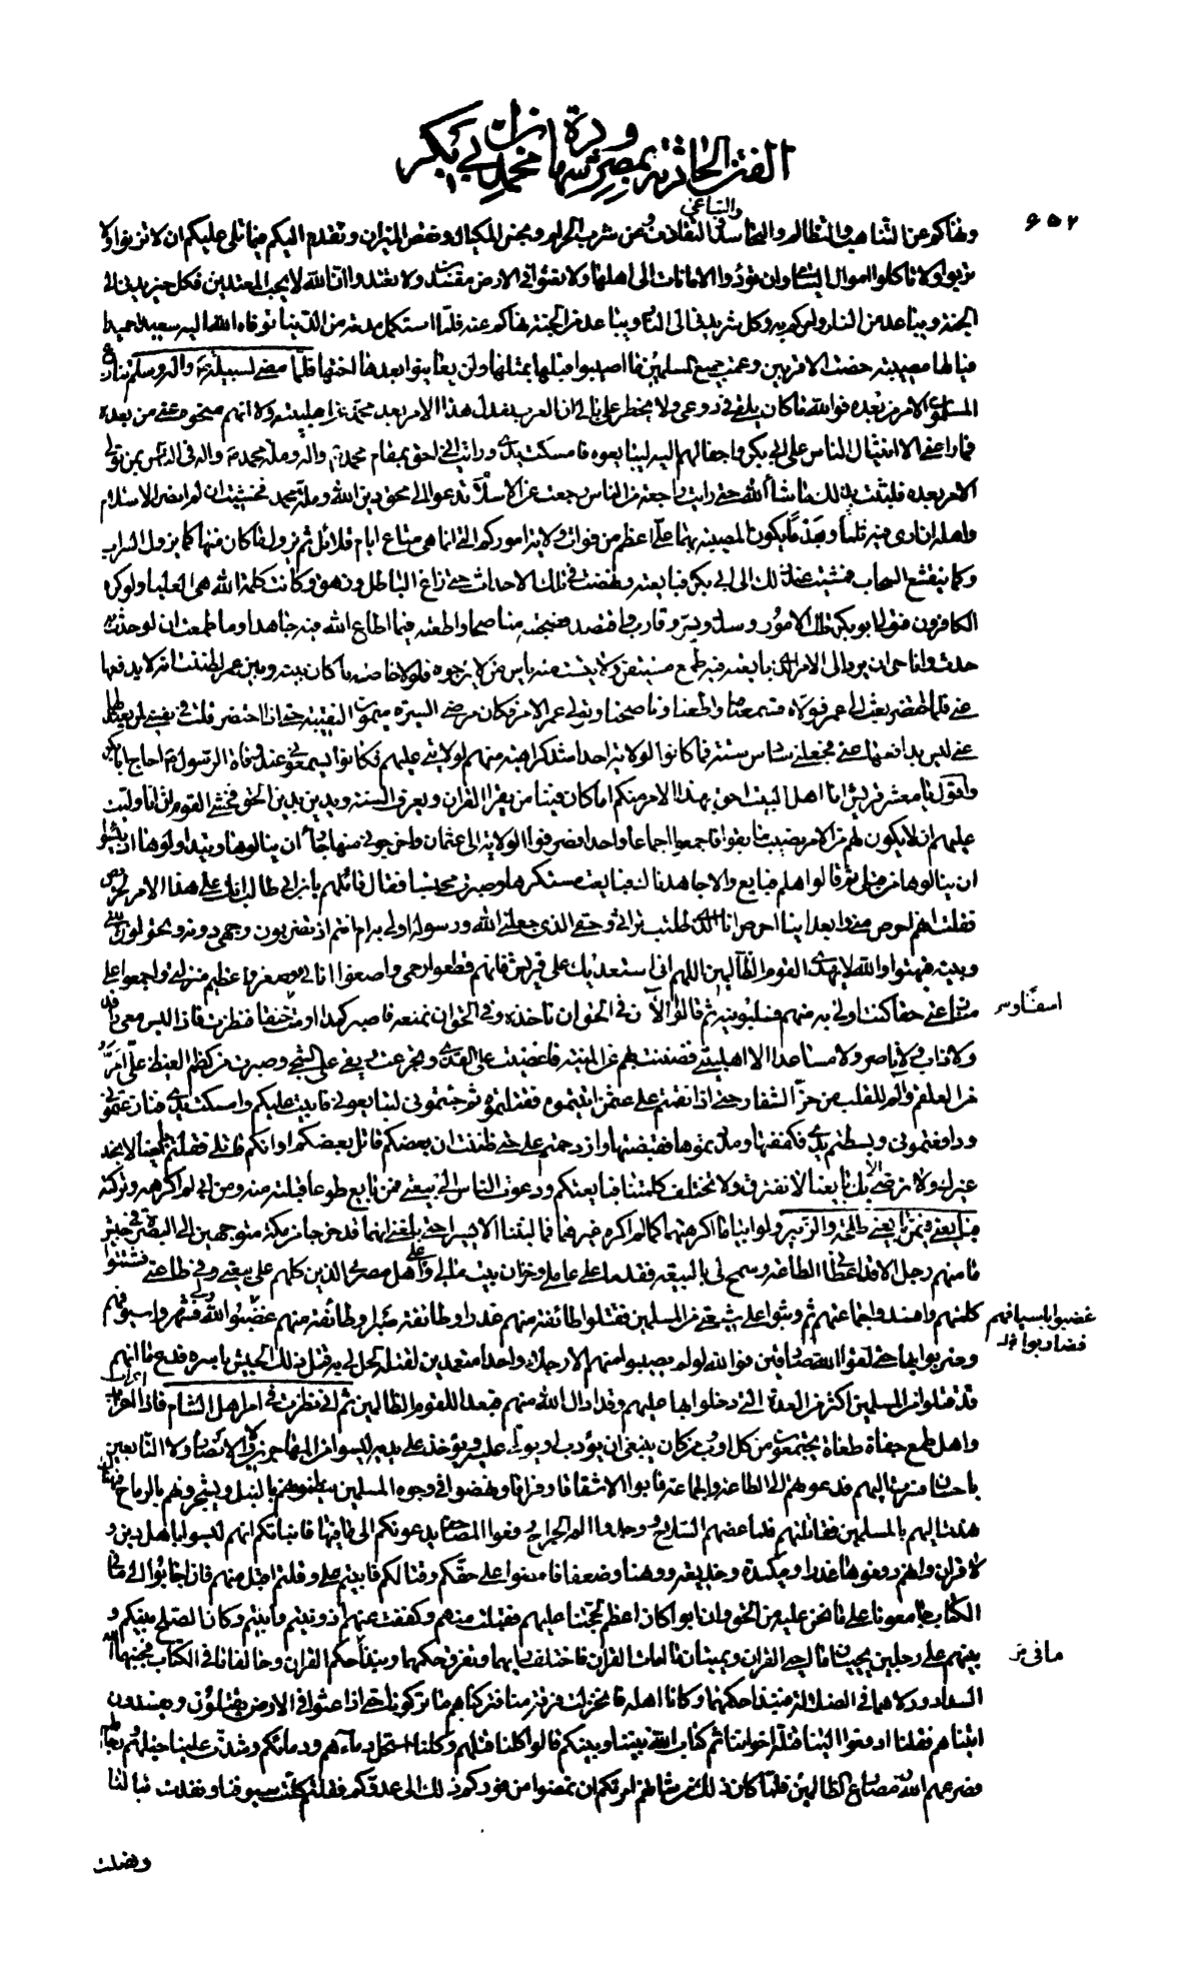 الفتن الحادثة بمصر وشهادة محمد بن ابي بكر
٦٥٢
والتباغي
ونهاكم عن التناهب والتظالم والتحاسد والتقاذف وعن شرب الحرام وبخس المكيال ونقص الميزان وتقدم اليكم فيما تلى عليكم ان لا تزنوا ولا
تربوا ولا تاكلوا اموال اليتامى وان تؤدوا الامانات الى اهلها ولا تعثوا في الارض مفسدين ولا تعتدوا ان الله لا يحب المعتدين فكل خير يدني الى
الجنة ويباعد من النار امركم به وكل شر يدني الى النار ويباعد من الجنة نهاكم عنه فلما استكمل مدته من الدنيا توفاه الله اليه سعيدا حميدا
فيا لها مصيبة خصت الاقربين وعمت جميع المسلمين ما اصيبوا قبلها بمثلها ولن يعاينوا بعدها اختها فلما مضى لسبيله ص واله وسلم تنازع
المسلمون الامر بعده فوالله ما كان يلقى في روعي ولا يخطر على بالي ان العرب تعدل هذا الامر بعد محمد عن اهل بيته ولا انهم منحوه عني من بعده
فما راعني الا انثيال الناس على ابي بكر واجفالهم اليه ليبايعوه فامسكت يدي ورايت اني احق بمقام محمد ص واله وملة محمد ص واله في الناس بمن تولى
الامر بعده فلبثت بذلك ما شاء الله حتى رايت راجعة من الناس رجعت عن الاسلام تدعو الى محق دين الله وملة محمد فخشيت ان لم انصر الاسلام
واهله ان ارى فيه ثلما وهدما يكون المصيبة بهما علي اعظم من فوات ولاية اموركم التي انما هي متاع ايام قلائل ثم يزول ما كان منها كما يزول السراب
وكما ينقشع السحاب فمشيت عند ذلك الى ابي بكر فبايعته ونهضت في تلك الاحداث حتى زاغ الباطل وزهق وكانت كلمة الله هي العليا ولو كره
الكافرون فتولى ابو بكر تلك الامور وسدد ويسر وقارب واقتصد فصحبته مناصحا واطعته فيما اطاع الله فيه جاهدا وما طمعت ان لو حدث به
حدث وانا حي ان يرد الي الامر الذي بايعته فيه طمع مستيقن ولا يئست منه ياس من لا يرجوه فلولا خاصة ما كان بينه وبين عمر لظننت انه لا يدفعها
عني فلما احتضر بعث الى عمر فولاه فسمعنا واطعنا وناصحنا وتولى عمر الامر وكان مرضي السيرة ميمون النقيبة حتى اذا احتضر قلت في نفسي لن يعدلها
عني ليس بدافعها عني فجعلني سادس ستة فما كانوا لولاية احد اشد كراهية منهم لولايتي عليهم فكانوا يسمعوني عند وفاة الرسول ص احاج ابا بكر
واقول يا معشر قريش انا اهل البيت احق بهذا الامر منكم اما كان فينا من يقرا القران ويعرف السنة ويدين بدين الحق فخشي القوم ان انا وليت
عليهم ان لا يكون لهم من الامر نصيب ما بقوا فاجمعوا اجماعا واحدا فصرفوا الولاية الى عثمان واخرجوني منها رجاء ان ينالوها ويتداولوها اذ يئسوا
ان ينالوها من قبلي ثم قالوا هلم فبايع والا جاهدناك فبايعت مستكرها وصبرت محتسبا فقال قائلهم يا بن ابي طالب انك على هذا الامر لحريص
فقلت انتم احرص مني وابعد اينا احرص انا الذي طلبت تراثي وحقي الذي جعلني الله ورسوله اولى به ام انتم اذ تضربون وجهي دونه وتحولون بيني
وبينه فبهتوا والله لا يهدي القوم الظالمين اللهم اني استعديك على قريش فانهم قطعوا رحمي واصغوا انائي وصغروا عظيم منزلتي واجمعوا على
منازعتي حقا كنت اولى به منهم فسلبونيه ثم قالوا الا ان في الحق ان تاخذه وفي الحق ان تمنعه فاصبر كمدا او مت حنقا فنظرت فاذا ليس معي رافد
اسفا وسر
ولا ذاب ولا ناصر ولا مساعد الا اهل بيتي فضننت بهم عن المنية فاغضيت على القذى وتجرعت ريقي على الشجى وصبرت من كظم الغيظ على امر
من العلقم والم للقلب من حز الشفار حتى اذا نقمتم على عثمن اتيتموه فقتلتموه ثم جئتموني لتبايعوني فابيت عليكم وامسكت يدي فنازعتموني
ودافعتموني وبسطتم يدي فكففتها ومددتموها فقبضتها وازدحمتم علي حتى ظننت ان بعضكم قاتل بعضكم او انكم قاتلي فقلتم بايعنا لا نجد
غيرك ولا نرضى الا بك بايعنا لا نفترق ولا تختلف كلمتنا فبايعتكم ودعوت الناس الى بيعتي فمن بايع طوعا قبلته منه ومن ابى لم اكرهه وتركته
فبايعني فيمن بايعني طلحة والزبير ولو ابيا ما اكرهتهما كما لم اكره غيرهما فما لبثنا الا يسيرا حتى بلغني انهما قد خرجا من مكة متوجهين الى البصرة في جيش
ما منهم رجل الا قد اعطاني الطاعة وسمح لي بالبيعة فقدما على عاملي وخزان بيت مالي وعلى اهل مصري الذين كلهم على بيعتي وفي طاعتي فشتتوا
كلمتهم وافسدوا جماعتهم ثم وثبوا على شيعتي من المسلمين فقتلوا طائفة منهم غدرا وطائفة صبرا وطائفة منهم غضبوا لله ولي فشهروا سيوفهم
غضبوا باسيافهم
فضاربوا خ‍د
وضربوا بها حتى لقوا الله صادقين فوالله لو لم يصيبوا منهم الا رجلا واحدا متعمدين لقتله لحل لي به قتل ذلك الجيش باسره فدع ما انهم
قد قتلوا من المسلمين اكثر من العدة التي دخلوا بها عليهم وقد ادال الله منهم فبعدا للقوم الظالمين ثم اني نظرت في امر اهل الشام فاذا اعراب احزاب
واهل طمع جفاة طغاة يجتمعون من كل اوب من كان ينبغي ان يؤدب او يولى عليه ويؤخذ على يديه ليسوا من المهاجرين ولا الانصار ولا التابعين
باحسان فسرت اليهم فدعوتهم الى الطاعة والجماعة فابوا الا شقاقا وفراقا ونهضوا في وجوه المسلمين ينضحونهم بالنبل ويشجرونهم بالرماح فهناك
نهدت اليهم بالمسلمين فقاتلتهم فلما عضهم السلاح ووجدوا الم الجراح رفعوا المصاحف يدعونكم الى ما فيها فانباتكم انهم ليسوا باهل دين و
لا قران وانهم رفعوها غدرا ومكيدة وخديعة ووهنا وضعفا فامضوا على حقكم وقتالكم فابيتم علي وقلتم اقبل منهم فان اجابوا الى ما في
الكتاب جامعونا على ما نحن عليه من الحق وان ابوا كان اعظم لحجتنا عليهم فقبلت منهم وكففت عنهم اذ ونيتم وابيتم وكان الصلح بينكم و
بينهم على رجلين يحييان ما احيى القران ويميتان ما امات القران فاختلف رايهما وتفرق حكمهما ونبذا حكم القران وخالفا ما في الكتاب فجنبهما الله
ما في تر
السداد ودلاهما في الضلالة فنبذا حكمهما وكانا اهله فانخزلت فرقة منا فتركناهم ما تركونا حتى اذا عثوا في الارض يقتلون ويفسدون
اتيناهم فقلنا ادفعوا الينا قتلة اخواننا ثم كتاب الله بيننا وبينكم قالوا كلنا قتلهم وكلنا استحل دماءهم ودمائكم وشدت علينا خيلهم ورجالهم
فصرعهم الله مصارع الظالمين فلما كان ذلك من شانهم امرتكم ان تمضوا من فوركم ذلك الى عدوكم فقلتم كلت سيوفنا ونفدت نبالنا
ونصلت